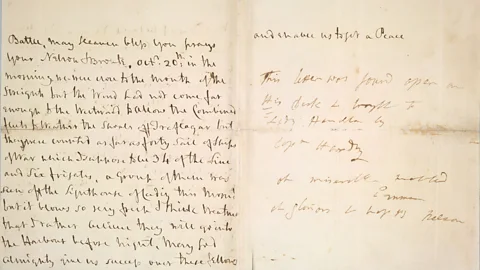 Battle, may heaven bless you prays
your Nelson & Bronte, octr. 20th: in the
morning we were close to the mouth of the
Streights but the Wind had not come far
enough to the Westward to allow the Combined
fleets to weather the Shoals off Traflagar but
they were counted as far as forty Sail of Ships
of War which I suppose to be 34 of the Line
and six frigates, a Group of them was
seen off the Lighthouse of Cadiz this Morng
but it blows so very fresh & thick weather
that I rather believe they will go into
the Harbour before night, May God
almighty give us success over these fellows
and enable us to get a Peace
This letter was found open on
His Desk & brought to
Lady Hamilton by
Captn Hardy
oh miserable wretched
Emma
oh glorious & happy Nelson